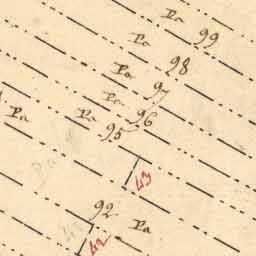 Pa 99
Pa 98
Pa 97
Pa 96
Pa Pa 95
43
92 Pa
42